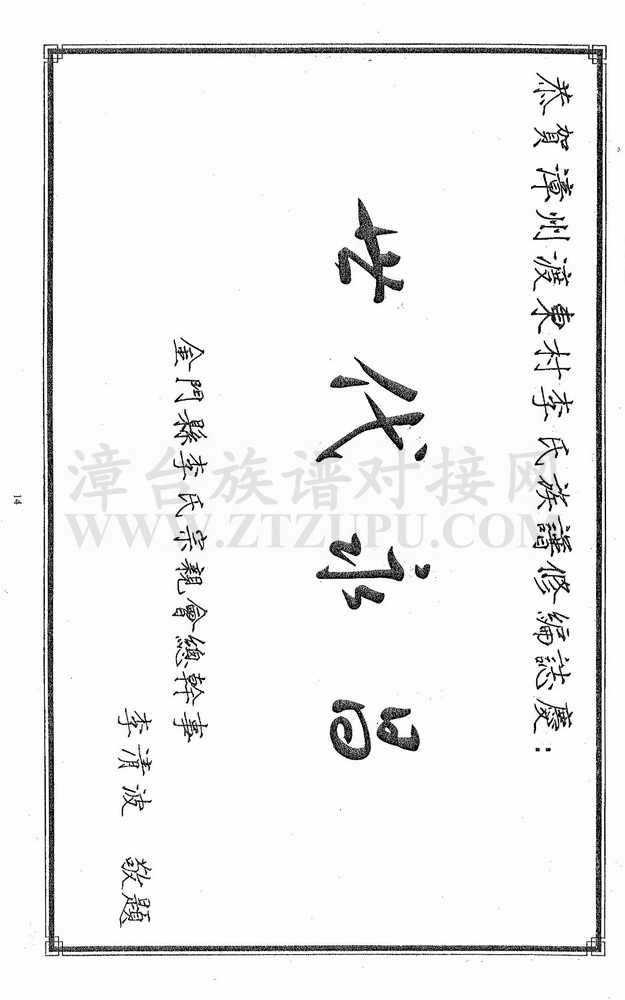 恭賀漳州渡東村李氏族譜修編誌慶：
世代永昌
金門縣李氏宗親會總幹事
李清波 敬題
14
漳台族谱对接网
WWW.ZTZUPU.COM